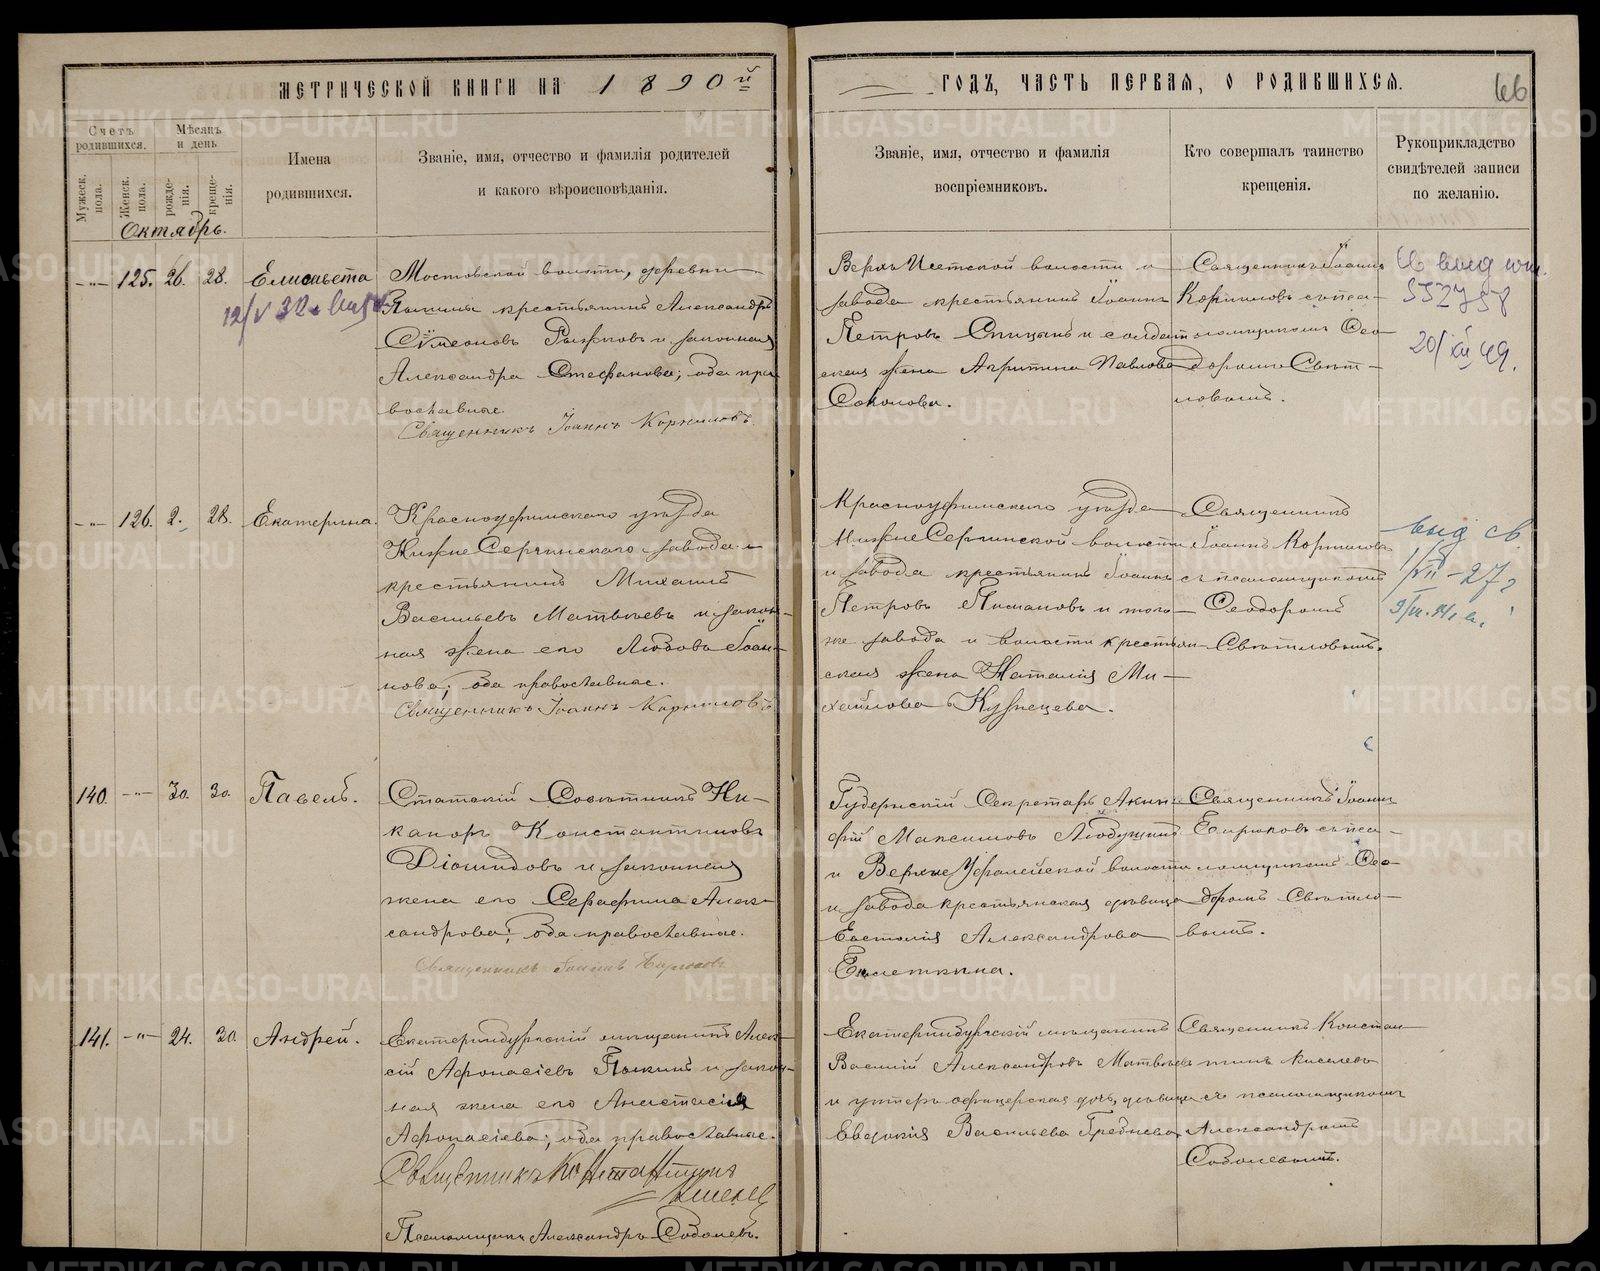 МЕТРИЧЕСКОЙ КНИГИ НА 1890й
ГОДЪ, ЧАСТЬ ПЕРВАЯ, О РОДИВШИХСЯ.
66
Счетъ родившихся.
Мужеск. пола.
Женск. пола.
Мѣсяцъ и день
рожденія.
крещенія.
Имена
родившихся.
Званіе, имя, отчество и фамилія родителей
и какого вѣроисповѣданія.
Званіе, имя, отчество и фамилія
воспріемниковъ.
Кто совершалъ таинство
крещенія.
Рукоприкладство
свидѣтелей записи
по желанію.
Октябрь.
125. 26. 28. Елисавета
Мостовской волости, деревни
крестьянинъ Александръ
Сѵмеоновъ Рыжковъ и законная
Александра Стефанова; оба пра
вославные.
Священникъ Іоаннъ Корниловъ
Верхъ Исетской волости и
завода крестьянинъ Іоаннъ
Петровъ Спицынъ и солдат
ская жена Агрипина Павлова
Соколова.
Священникъ Іоаннъ
Корниловъ съ пса-
ломщикомъ Ѳео
доромъ Свѣт-
ловымъ.
20/XII 49.
126. 2. 28. Екатерина.
Красноуфимскаго уѣзда
Нижне Сергинскаго завода
крестьянинъ Михаилъ
Васильевъ Матвѣевъ и закон-
ная жена его Любовь Іоан-
нова; оба православные.
Священникъ Іоаннъ Корниловъ
Красноуфимскаго уѣзда
Нижне Сергинской волости
и завода крестьянинъ Іоаннъ
Петровъ и того-
же завода и волости крестьян-
ская жена Наталія Ми-
хайлова Кузнецева.
Священникъ
Іоаннъ Корниловъ
съ псаломщикомъ
Ѳеодоромъ
Свѣтловымъ.
выд св.
1/VII-27г
140. 30. 30. Павелъ.
Статскій Совѣтникъ Ни-
каноръ Константиновъ
Діомидовъ и законная
жена его Серафима Алек-
сандрова; оба православные.
Священникъ Іоаннъ Бирюковъ
Губернскій Секретарь Акин-
фій Максимовъ
и Верхне Уфалейской волости
и завода крестьянская дѣвица
Евстолія Александрова
Священникъ Іоаннъ
Бирюковъ съ пса-
ломщикомъ Ѳео-
доромъ Свѣтло-
вымъ.
141. 24. 30. Андрей.
Екатеринбургскій мѣщанинъ Алек-
сій Аѳонасіевъ и закон-
ная жена его Анастасія
Аѳонасіева; оба православные.
Священникъ Константинъ
Киселевъ
Псаломщикъ Александръ Соболевъ.
Екатеринбургскій мѣщанинъ
Василій Александровъ Матвѣевъ
и унтеръ офицерская дочь, дѣвица
Евдокія Васильева Греднева.
Священникъ Констан
тинъ Киселевъ
съ псаломщикомъ
Александромъ
Соболевымъ.
METRIKI.GASO-URAL.RU